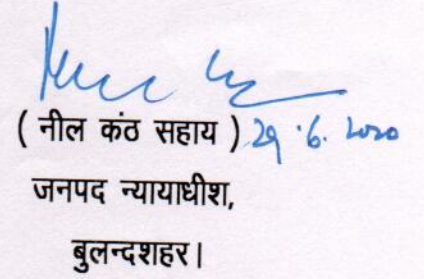 ( नील कंठ सहाय ) 29.6.2020
जनपद न्यायाधीश,
बुलन्दशहर।